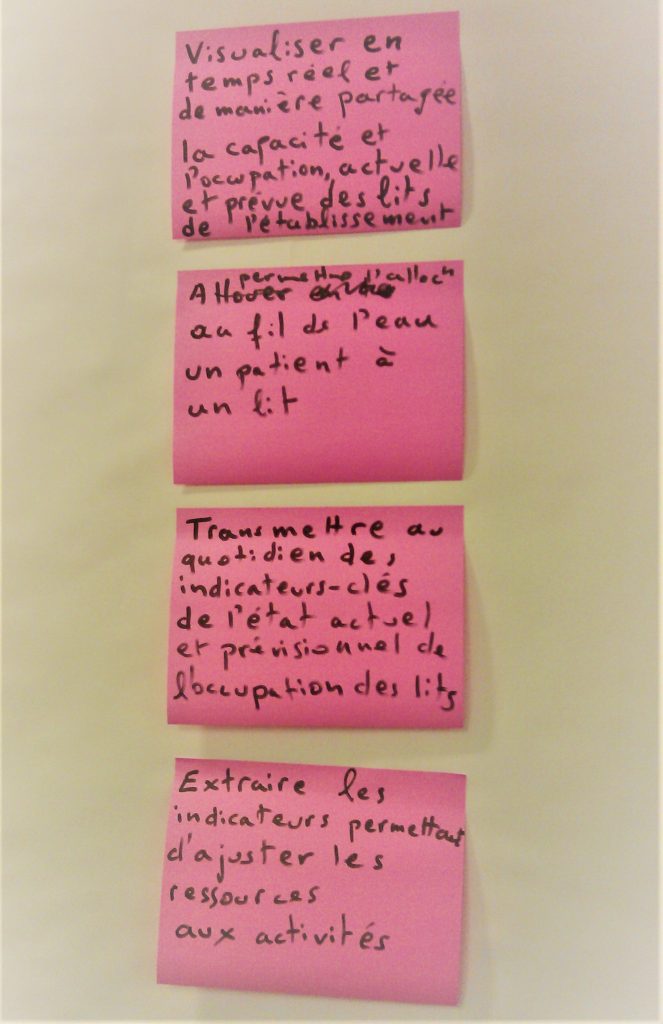 Visualiser en
temps réel et
de manière partagée
la capacité et
l'occupation, actuelle
et prévue des lits
de l'établissement
permettre l'allocn
Allouer
au fil de l'eau
un patient à
un lit
Transmettre au
quotidien des
indicateurs-clés
de l'état actuel
et prévisionnel de
l'occupation des lits
Extraire les
indicateurs permettant
d'ajuster les
ressources
aux activités